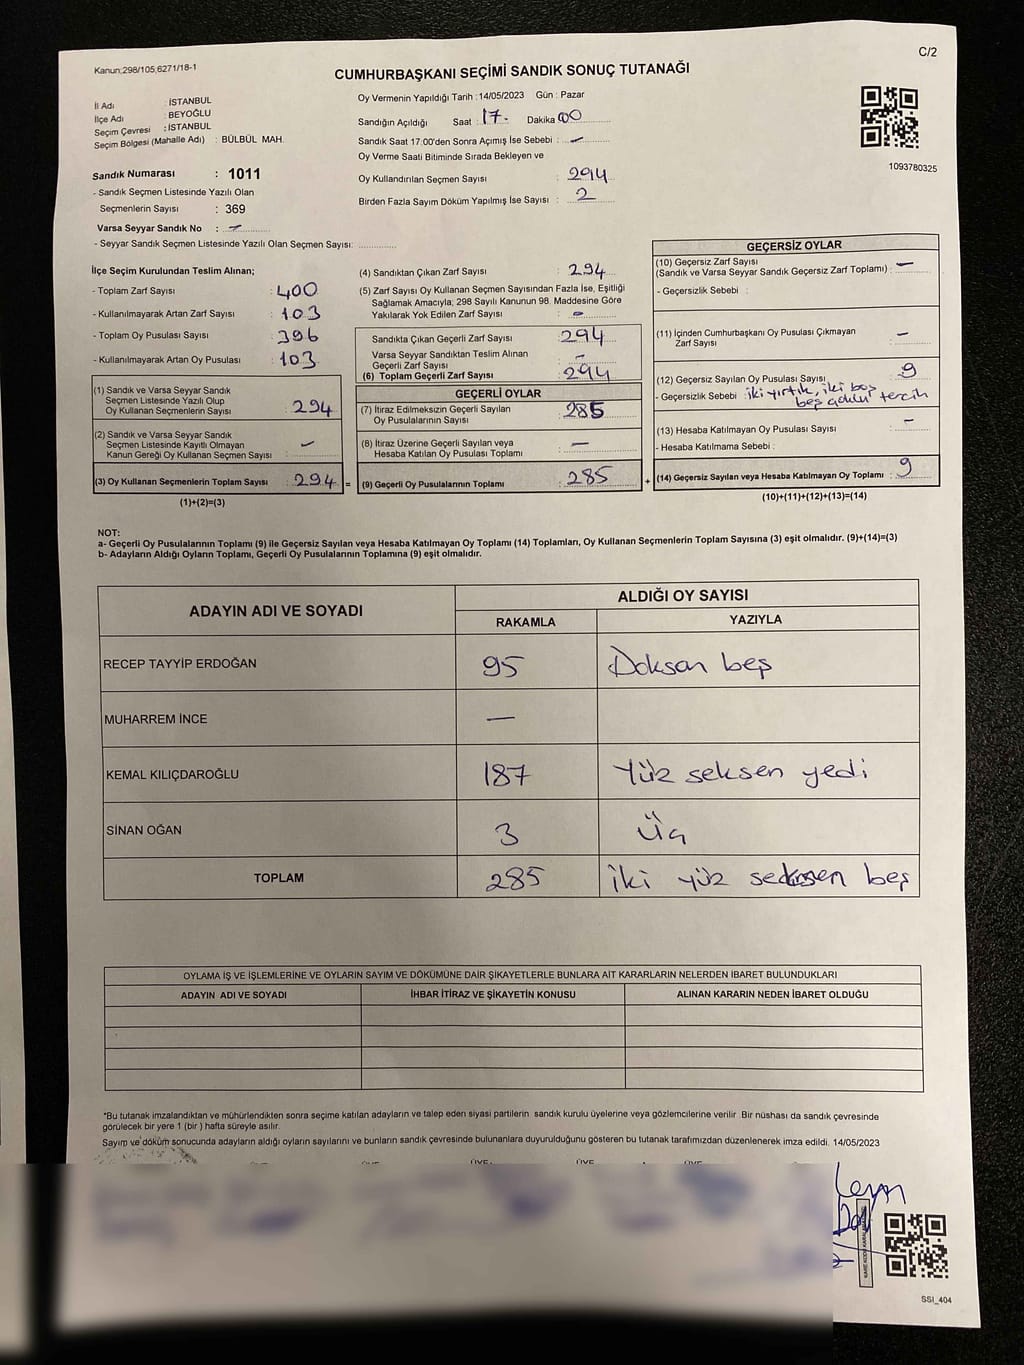 Kanun;298/105,6271/18-1
C/2
CUMHURBAŞKANI SEÇİMİ SANDIK SONUÇ TUTANAĞI
İl Adı : İSTANBUL
İlçe Adı : BEYOĞLU
Seçim Çevresi : İSTANBUL
Seçim Bölgesi (Mahalle Adı) : BÜLBÜL MAH.
Sandık Numarası : 1011
- Sandık Seçmen Listesinde Yazılı Olan
Seçmenlerin Sayısı : 369
Varsa Seyyar Sandık No : -
- Seyyar Sandık Seçmen Listesinde Yazılı Olan Seçmen Sayısı:
Oy Vermenin Yapıldığı Tarih :14/05/2023 Gün : Pazar
Sandığın Açıldığı Saat : 17. Dakika 00
Sandık Saat 17:00'den Sonra Açımış İse Sebebi : -
Oy Verme Saati Bitiminde Sırada Bekleyen ve
Oy Kullandırılan Seçmen Sayısı : 294
Birden Fazla Sayım Döküm Yapılmış İse Sayısı : 2
1093780325
İlçe Seçim Kurulundan Teslim Alınan;
- Toplam Zarf Sayısı : 400
- Kullanılmayarak Artan Zarf Sayısı : 103
- Toplam Oy Pusulası Sayısı : 396
- Kullanılmayarak Artan Oy Pusulası : 103
(1) Sandık ve Varsa Seyyar Sandık
Seçmen Listesinde Yazılı Olup
Oy Kullanan Seçmenlerin Sayısı : 294
(2) Sandık ve Varsa Seyyar Sandık
Seçmen Listesinde Kayıtlı Olmayan
Kanun Gereği Oy Kullanan Seçmen Sayısı : -
(3) Oy Kullanan Seçmenlerin Toplam Sayısı : 294 =
(1)+(2)=(3)
(4) Sandıktan Çıkan Zarf Sayısı : 294
(5) Zarf Sayısı Oy Kullanan Seçmen Sayısından Fazla İse, Eşitliği
Sağlamak Amacıyla; 298 Sayılı Kanunun 98. Maddesine Göre
Yakılarak Yok Edilen Zarf Sayısı :
Sandıkta Çıkan Geçerli Zarf Sayısı : 294
Varsa Seyyar Sandıktan Teslim Alınan
Geçerli Zarf Sayısı : -
(6) Toplam Geçerli Zarf Sayısı : 294
GEÇERLİ OYLAR
(7) İtiraz Edilmeksizin Geçerli Sayılan
Oy Pusulalarının Sayısı : 285
(8) İtiraz Üzerine Geçerli Sayılan veya
Hesaba Katılan Oy Pusulası Toplamı : -
(9) Geçerli Oy Pusulalarının Toplamı : 285 +
GEÇERSİZ OYLAR
(10) Geçersiz Zarf Sayısı
(Sandık ve Varsa Seyyar Sandık Geçersiz Zarf Toplamı) : -
- Geçersizlik Sebebi :
(11) İçinden Cumhurbaşkanı Oy Pusulası Çıkmayan
Zarf Sayısı : -
(12) Geçersiz Sayılan Oy Pusulası Sayısı : 9
- Geçersizlik Sebebi : iki yırtık, iki boş
beş çoklu tercih
(13) Hesaba Katılmayan Oy Pusulası Sayısı : -
- Hesaba Katılmama Sebebi :
(14) Geçersiz Sayılan veya Hesaba Katılmayan Oy Toplamı : 9
(10)+(11)+(12)+(13)=(14)
NOT:
a- Geçerli Oy Pusulalarının Toplamı (9) ile Geçersiz Sayılan veya Hesaba Katılmayan Oy Toplamı (14) Toplamları, Oy Kullanan Seçmenlerin Toplam Sayısına (3) eşit olmalıdır. (9)+(14)=(3)
b- Adayların Aldığı Oyların Toplamı, Geçerli Oy Pusulalarının Toplamına (9) eşit olmalıdır.
ADAYIN ADI VE SOYADI
ALDIĞI OY SAYISI
RAKAMLA YAZIYLA
RECEP TAYYİP ERDOĞAN 95 Doksan beş
MUHARREM İNCE -
KEMAL KILIÇDAROĞLU 187 Yüz seksen yedi
SİNAN OĞAN 3 Üç
TOPLAM 285 iki yüz seksen beş
OYLAMA İŞ VE İŞLEMLERİNE VE OYLARIN SAYIM VE DÖKÜMÜNE DAİR ŞİKAYETLERLE BUNLARA AİT KARARLARIN NELERDEN İBARET BULUNDUKLARI
ADAYIN ADI VE SOYADI İHBAR İTİRAZ VE ŞİKAYETİN KONUSU ALINAN KARARIN NEDEN İBARET OLDUĞU
*Bu tutanak imzalandıktan ve mühürlendikten sonra seçime katılan adayların ve talep eden siyasi partilerin sandık kurulu üyelerine veya gözlemcilerine verilir. Bir nüshası da sandık çevresinde
görülecek bir yere 1 (bir ) hafta süreyle asılır.
Sayım ve döküm sonucunda adayların aldığı oyların sayılarını ve bunların sandık çevresinde bulunanlara duyurulduğunu gösteren bu tutanak tarafımızdan düzenlenerek imza edildi. 14/05/2023
ÜYE ÜYE ÜYE ÜYE
SSI_404